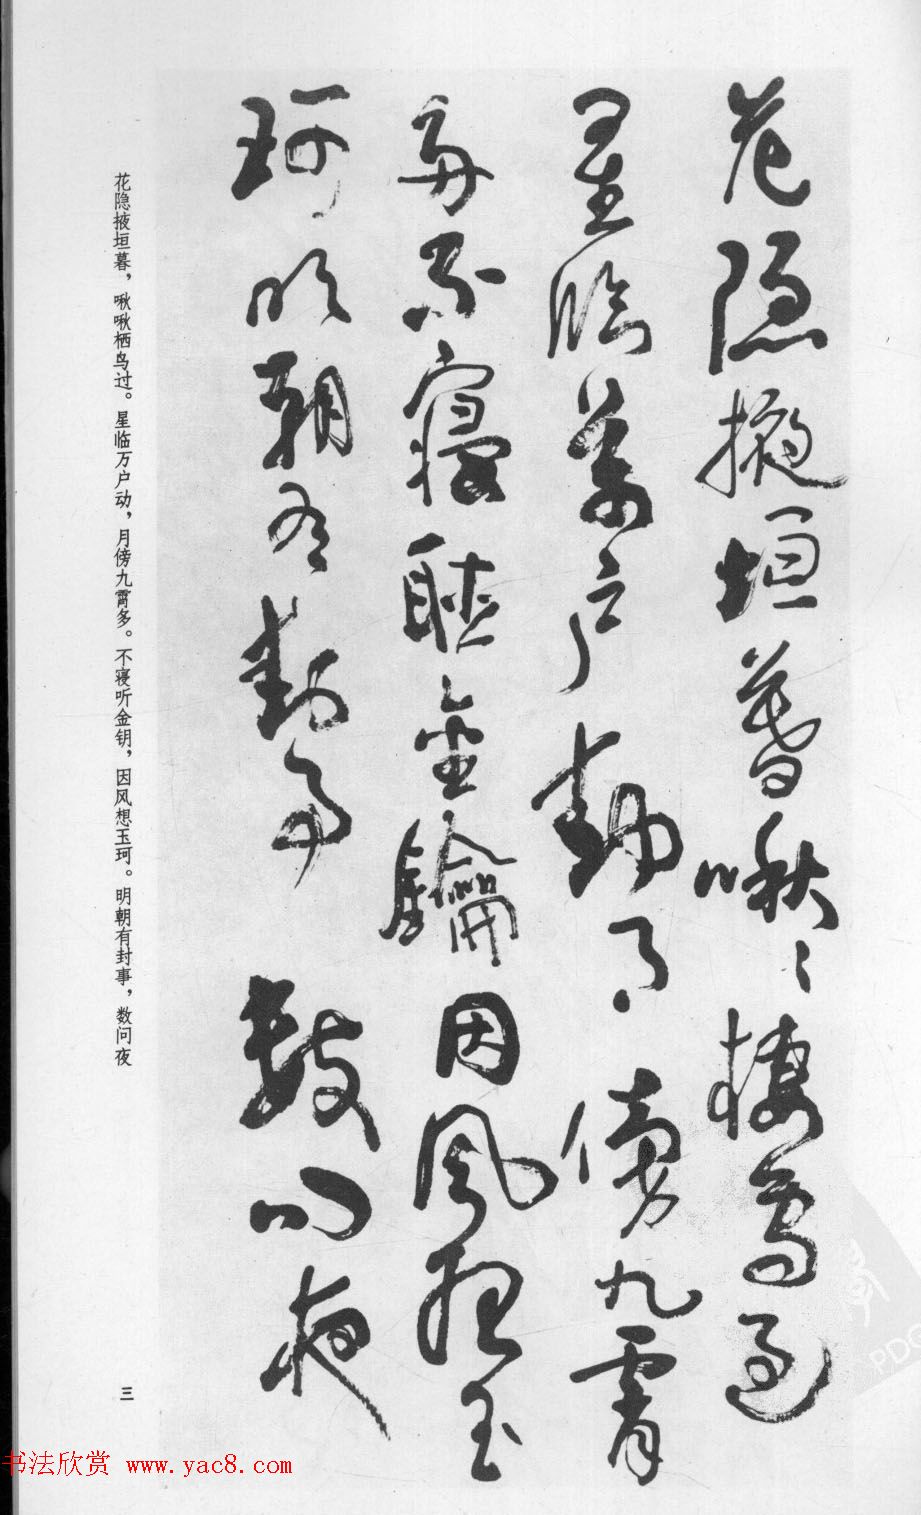 花隱掖垣暮啾々棲鳥過
星臨萬戶動月傍九霄
多不寢聽金鑰因風想玉
珂明朝有封事數問夜
花隐掖垣暮，啾啾栖鸟过。星临万户动，月傍九霄多。不寝听金钥，因风想玉珂。明朝有封事，数问夜
三
书法欣赏 www.yac8.com
PDG